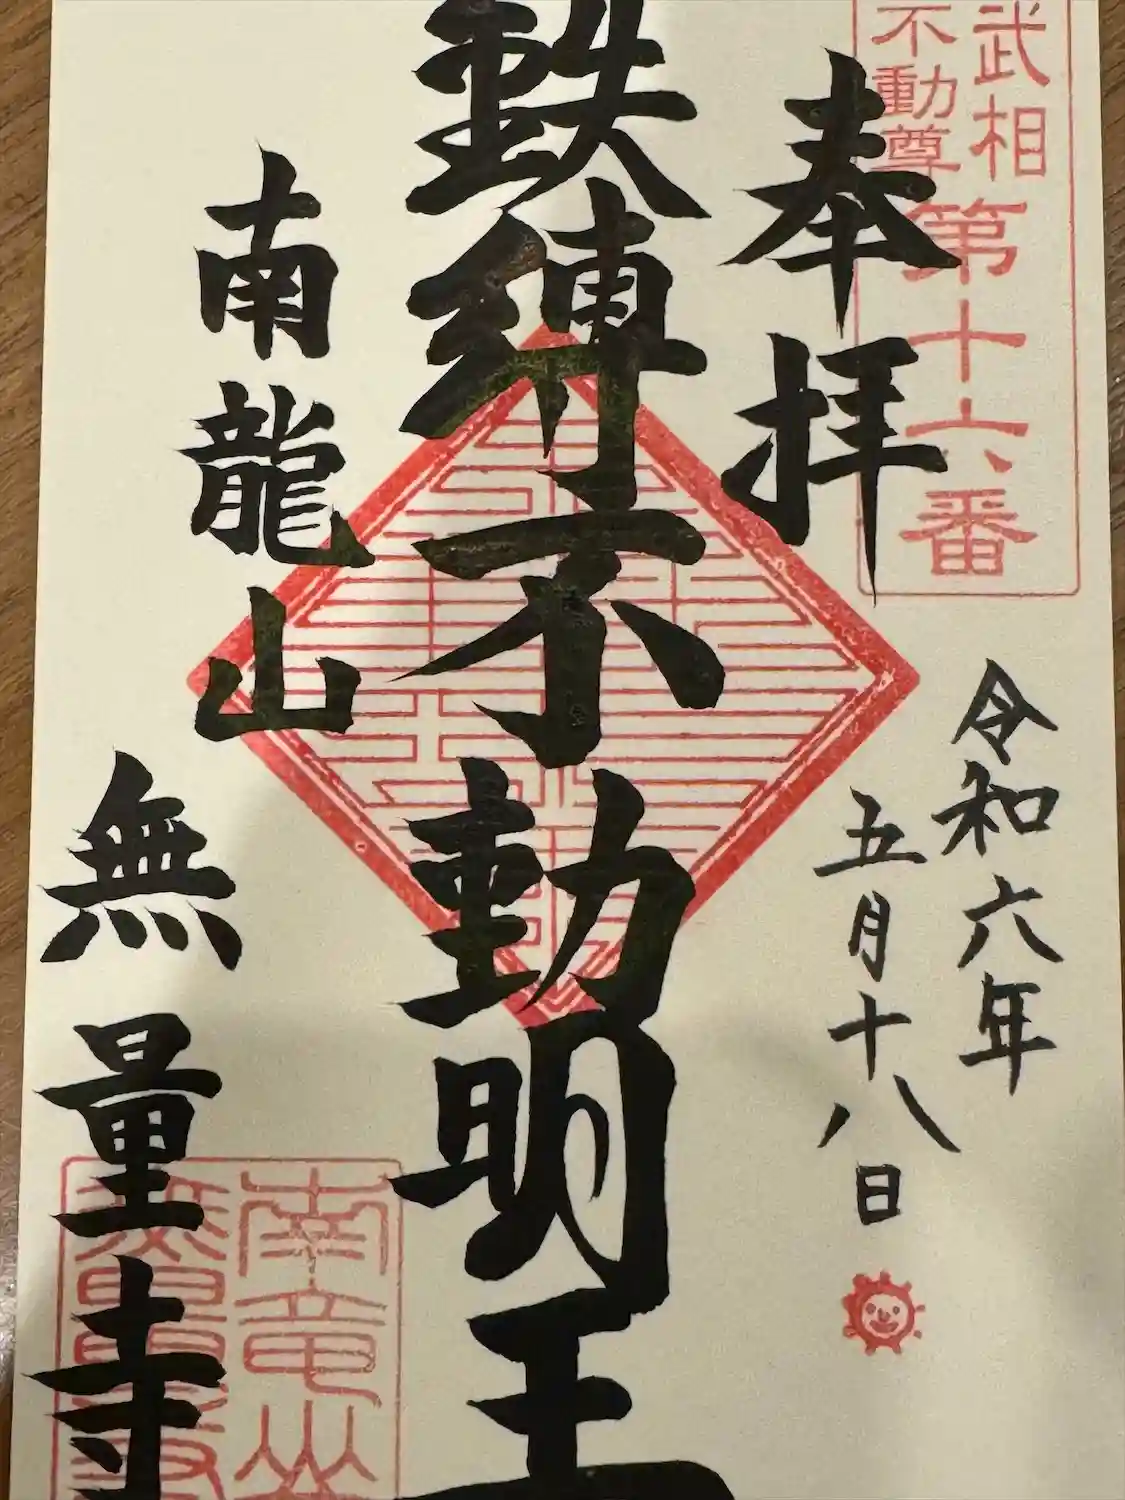 武相
不動尊
第十六番
奉拝
令和六年
五月十八日
鉄縛不動明王
南龍山
無量寺
南竜山